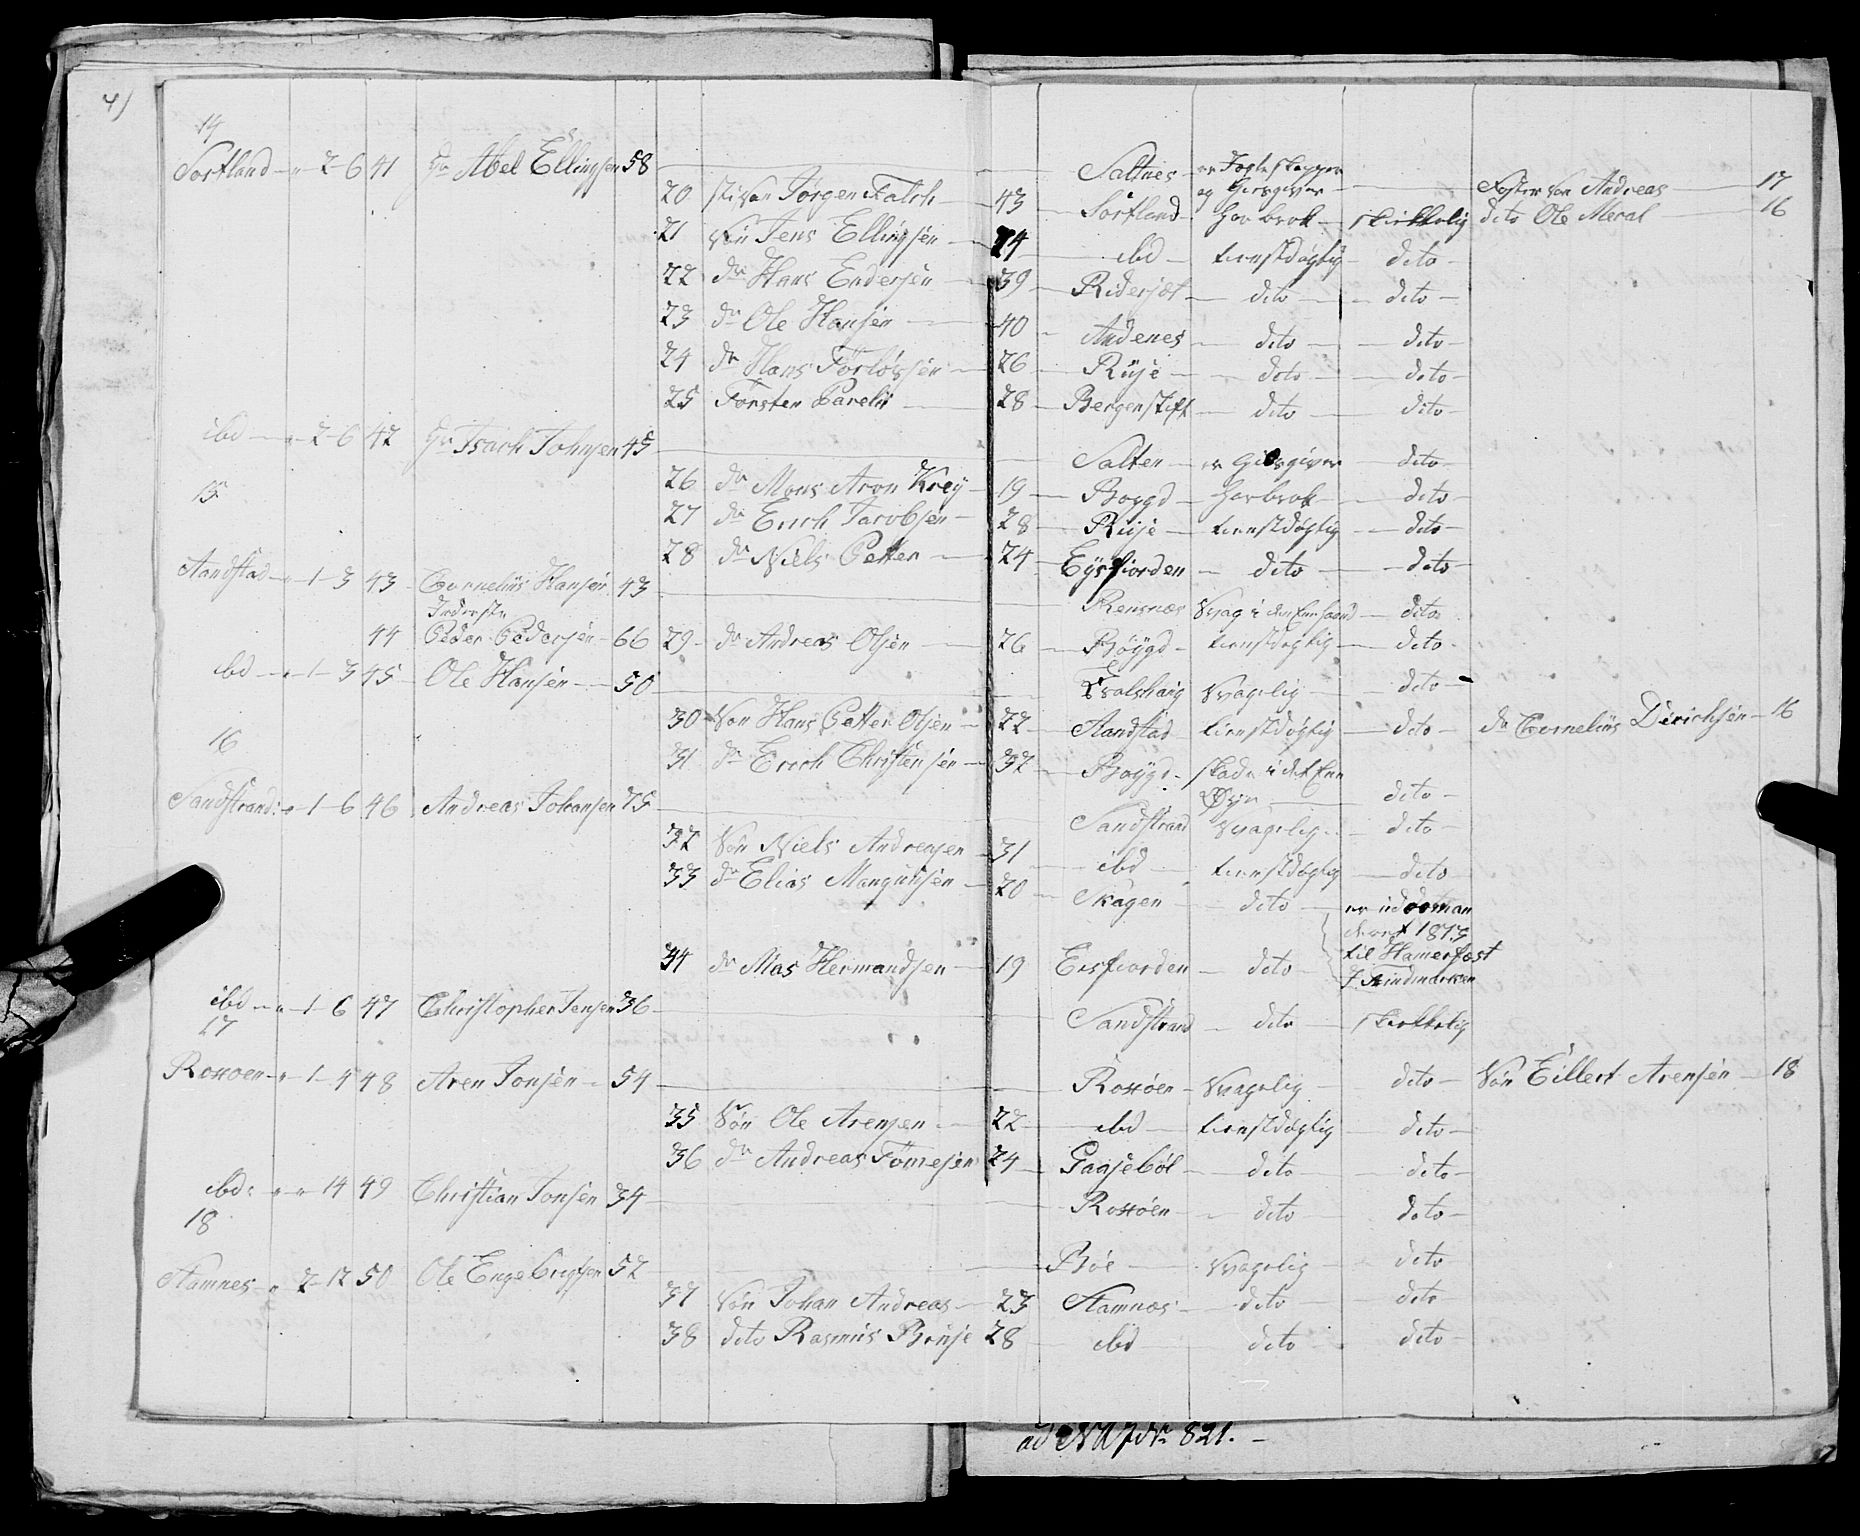 4)
14
Sortland - " 2 - 6 41 Hr Abel Ellingsen 58 Saltnes er Giesgiver Foster Søn Andreas 17
20 Jørgen Falch 43 Sortland har brok skikkelig dito Ole Meral 16
21 Søn Jens Ellingsen 24 ibd tienstdygtig dito
22 do Hans Endersen 39 Ridersjæt dito dito
23 do Ole Hansen 40 Andenes dito dito
24 do Hans Torløvsen 26 Rüje dito dito
25 Torsten Pareli 28 Bergenstift dito dito
ibd - " 2 - 6 42 Hr Isach Johnsen 45 Salten er Giesgiver dito
15
26 do Mons Aron Krey 19 Boygd har brok dito
27 do Erich Jacobsen 28 Rüje tienstdygtig dito
28 do Niels Petter 24 Eysfiorden dito dito
Aandstad - " 1 - 3 43 Cornelius Hansen 43 Rensnæs Svag i den Ene Haand dito
Inderste
44 Peder Pedersen 66 29 do Andreas Olsen 26 Bøygd tienstdygtig dito
ibd - " 1 - 3 45 Ole Hansen 50 Svagelig dito
30 Søn Hans Petter Olsen 22 Aandstad tienstdygtig dito do Cornelius Dirichsen 16
16
31 do Erich Christensen 32 Boygd skade i det Ene Øye dito
Sandstrand - " 1 - 6 46 Andreas Johansen 75 Sandstrand Svagelig dito
32 Søn Niels Andreasen 31 ibd tienstdygtig dito
33 do Elias Mangnusen 20 Skagen dito er udcoman
deret 1813
34 do Mas Hermandsen 19 Eisfiorden dito til Hamerfæst
i Findmarken
ibd - " 1 - 6 47 Christopher Jensen 36 Sandstrand dito skikkelig
17
Roxoen - " 1 - 4 48 Aren Jonsen 54 Roxøen Svagelig dito Søn Eillert Arensen 18
35 Søn Ole Arensen 22 ibd tienstdygtig dito
36 do Andreas Tomesen 24 Gaasebøl dito dito
ibd: " " 14 49 Christian Jonsen 34 Roxøen dito dito
18
Stamnes - " 2 - 12 50 Ole Engebrigtsen 52 Bøe Svagelig dito
37 Søn Johan Andreas 23 Stamnæs dito dito
38 dito Rasmus Brüse 28 ibd dito dito
ad No 821.